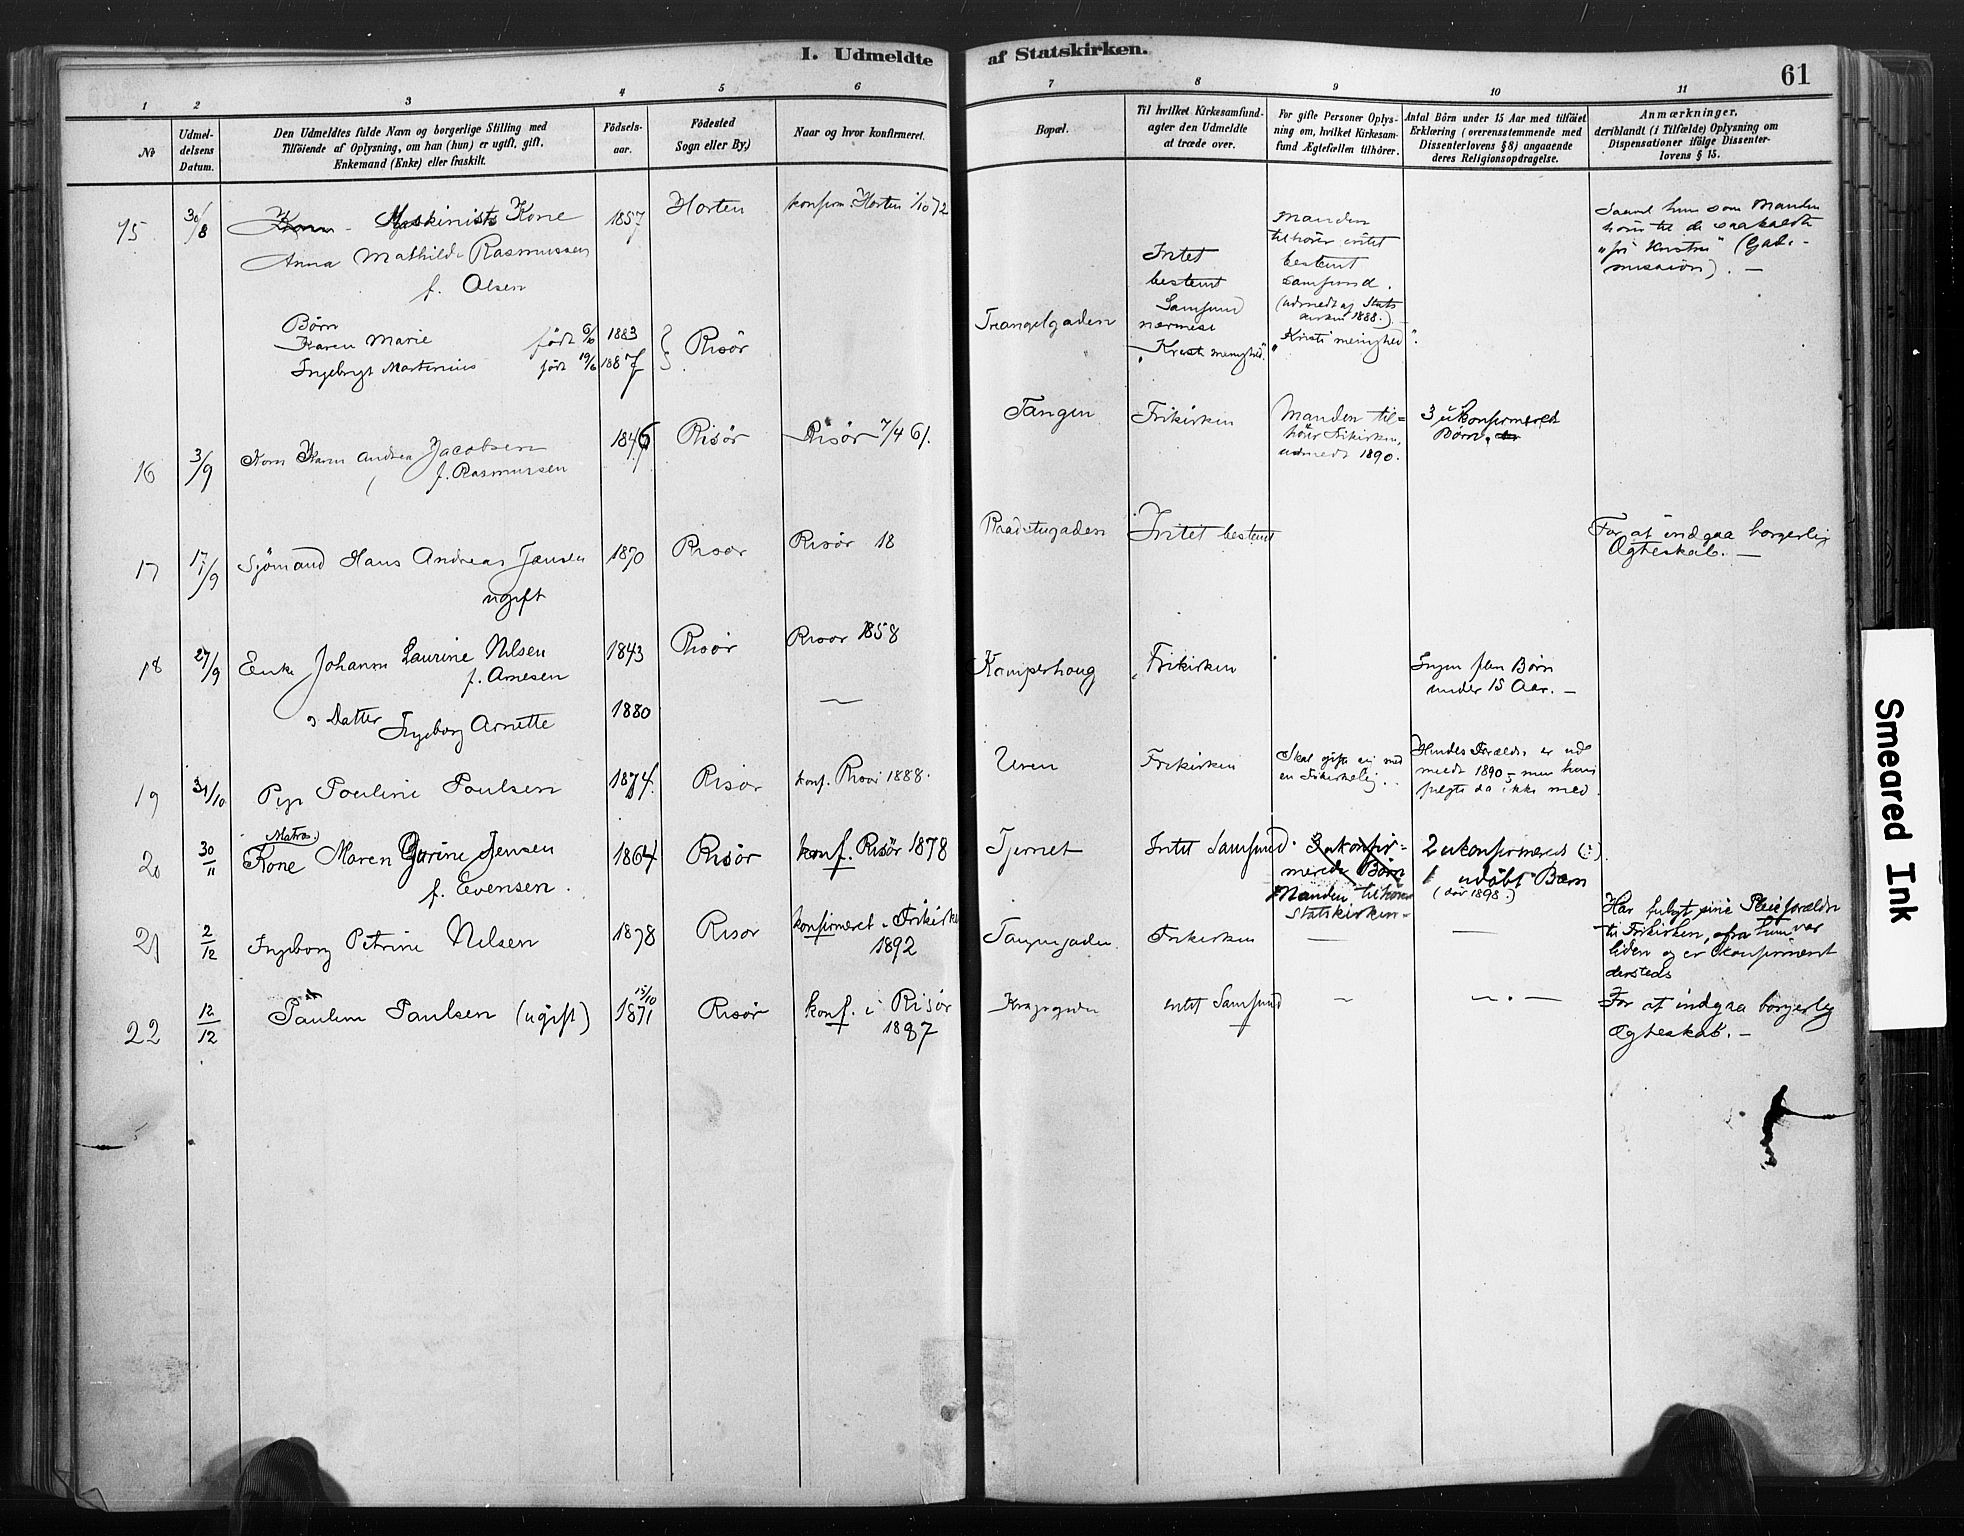 I. Udmeldte af Statskirken.
61
1 2 3 4 5 6 7 8 9 10 11
No
Udmel-
delsens
Datum.
Den Udmeldtes fulde Navn og borgerlige Stilling med
Tilføiende af Oplysning, om han (hun) er ugift, gift,
Enkemand (Enke) eller fraskilt.
Fødsels-
aar.
Fødested
Sogn eller By.)
Naar og hvor konfirmeret.
Bopæl.
Til hvilket Kirkesamfund-
agter den Udmeldte
at træde over.
For gifte Personer Oplys-
ning om, hvilket Kirkesam-
fund Ægtefællen tilhører.
Antal Børn under 15 Aar med tilføiet
Erklæring (overensstemmende med
Dissenterlovens § 8) angaaende
deres Religionsopdragelse.
Anmærkninger,
deriblandt (i Tilfælde) Oplysning om
Dispensationer ifölge Dissenter-
lovens § 15.
15
30/8
Maskinists Kone
Anna Mathilde Rasmussen
f. Olsen
1857
Horten
konfirm. Horten 1/10 72
Børn
Karen Marie født 6/10 1883
Ingebrygt Martinius født 19/6 1887
Risör
Trangelgaden
Intet
bestemt
Samfund
nærmest
"Kristi menighed"
Manden
tilhører intet
bestemt
Samfund.
(udmeldt af Stats
kirken 1888.)
"Kristi menighed".
Saavel hun som Manden
hører til de saakaldte
mission). —
16
3/9
Kone Karen Andrea Jacobsen
f. Rasmussen
1846
Risör
Risör 7/4 61.
Tangen
Frikirken
Manden til=
hører Frikirken,
udmeldt 1890.
3 ukonfirmeret
Børn.
17
17/9
Sjømand Hans Andreas Jansen
ugift
1870
Risør
Risör 18
Raadstugaden
Intet bestemt
For at indgaa borgerlig
Ægteskab. —
18
27/9
Enke Johanne Laurine Nilsen
f. Arnesen
1843
Risör
Risør 1858
Kamperhoug
Frikirken
Ingen flere Børn
under 15 Aar. —
Datter Ingeborg Arnette
1880
—
19
31/10
Pige Pouline Poulsen
1874
Risør
konf. Risør 1888.
Uren
Frikirken
Skal gifte sig med
en Frikirkelig.
Hendes Forældre er ud
meldt 1890 — men hun
fulgte da ikke med.
20
30/11
Matros.)
Kone Maren Gurine Jensen
f. Evensen.
1864
Risør
konf. Risør 1878
Tjernet
Intet Samfund.
3 ukonfir=
merede Børn
Manden tilhører
Statskirken =
2 ukonfirmeret (:)
1 udøbt Barn
(dør 1898.)
21
2/12
Ingeborg Petrine Nilsen
1878
Risør
konfirmeret i Frikirken
1892
Tangengaden.
Frikirken
—
—
Har fulgt sine Pleieforældre
til Frikirken, fra hun var
liden og er konfirmeret
dersteds
22
12/12
Pauline Paulsen (ugift)
15/10
1871
Risør
konf. i Risør
1887
Kragsgaden
intet Samfund
—
— . —
For at indgaa borgerlig
Ægteskab. —
Smeared Ink